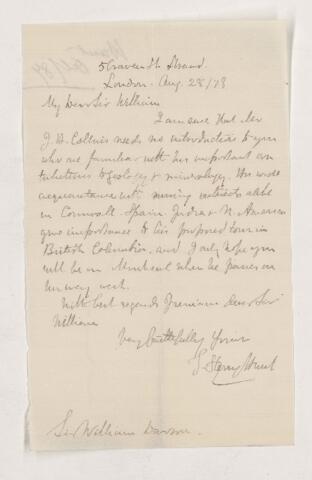 5 Craven St. Strand.
London. Aug. 28/
My Dear Sir William
I am sure that Mr
J. H. Collins needs no introduction to you
who are familiar with his important con
tributions to Geology & mineralogy. His wide
acquaintance with mining
in Cornwall, Spain, India & N. America
give importance to his proposed tour in
British Columbia, and I only hope you
will be in Montreal when he passes on
his way west.
With best regards I remain dear Sir
William
Very faithfully Yours
T. Sterry Hunt
Sir William Dawson.